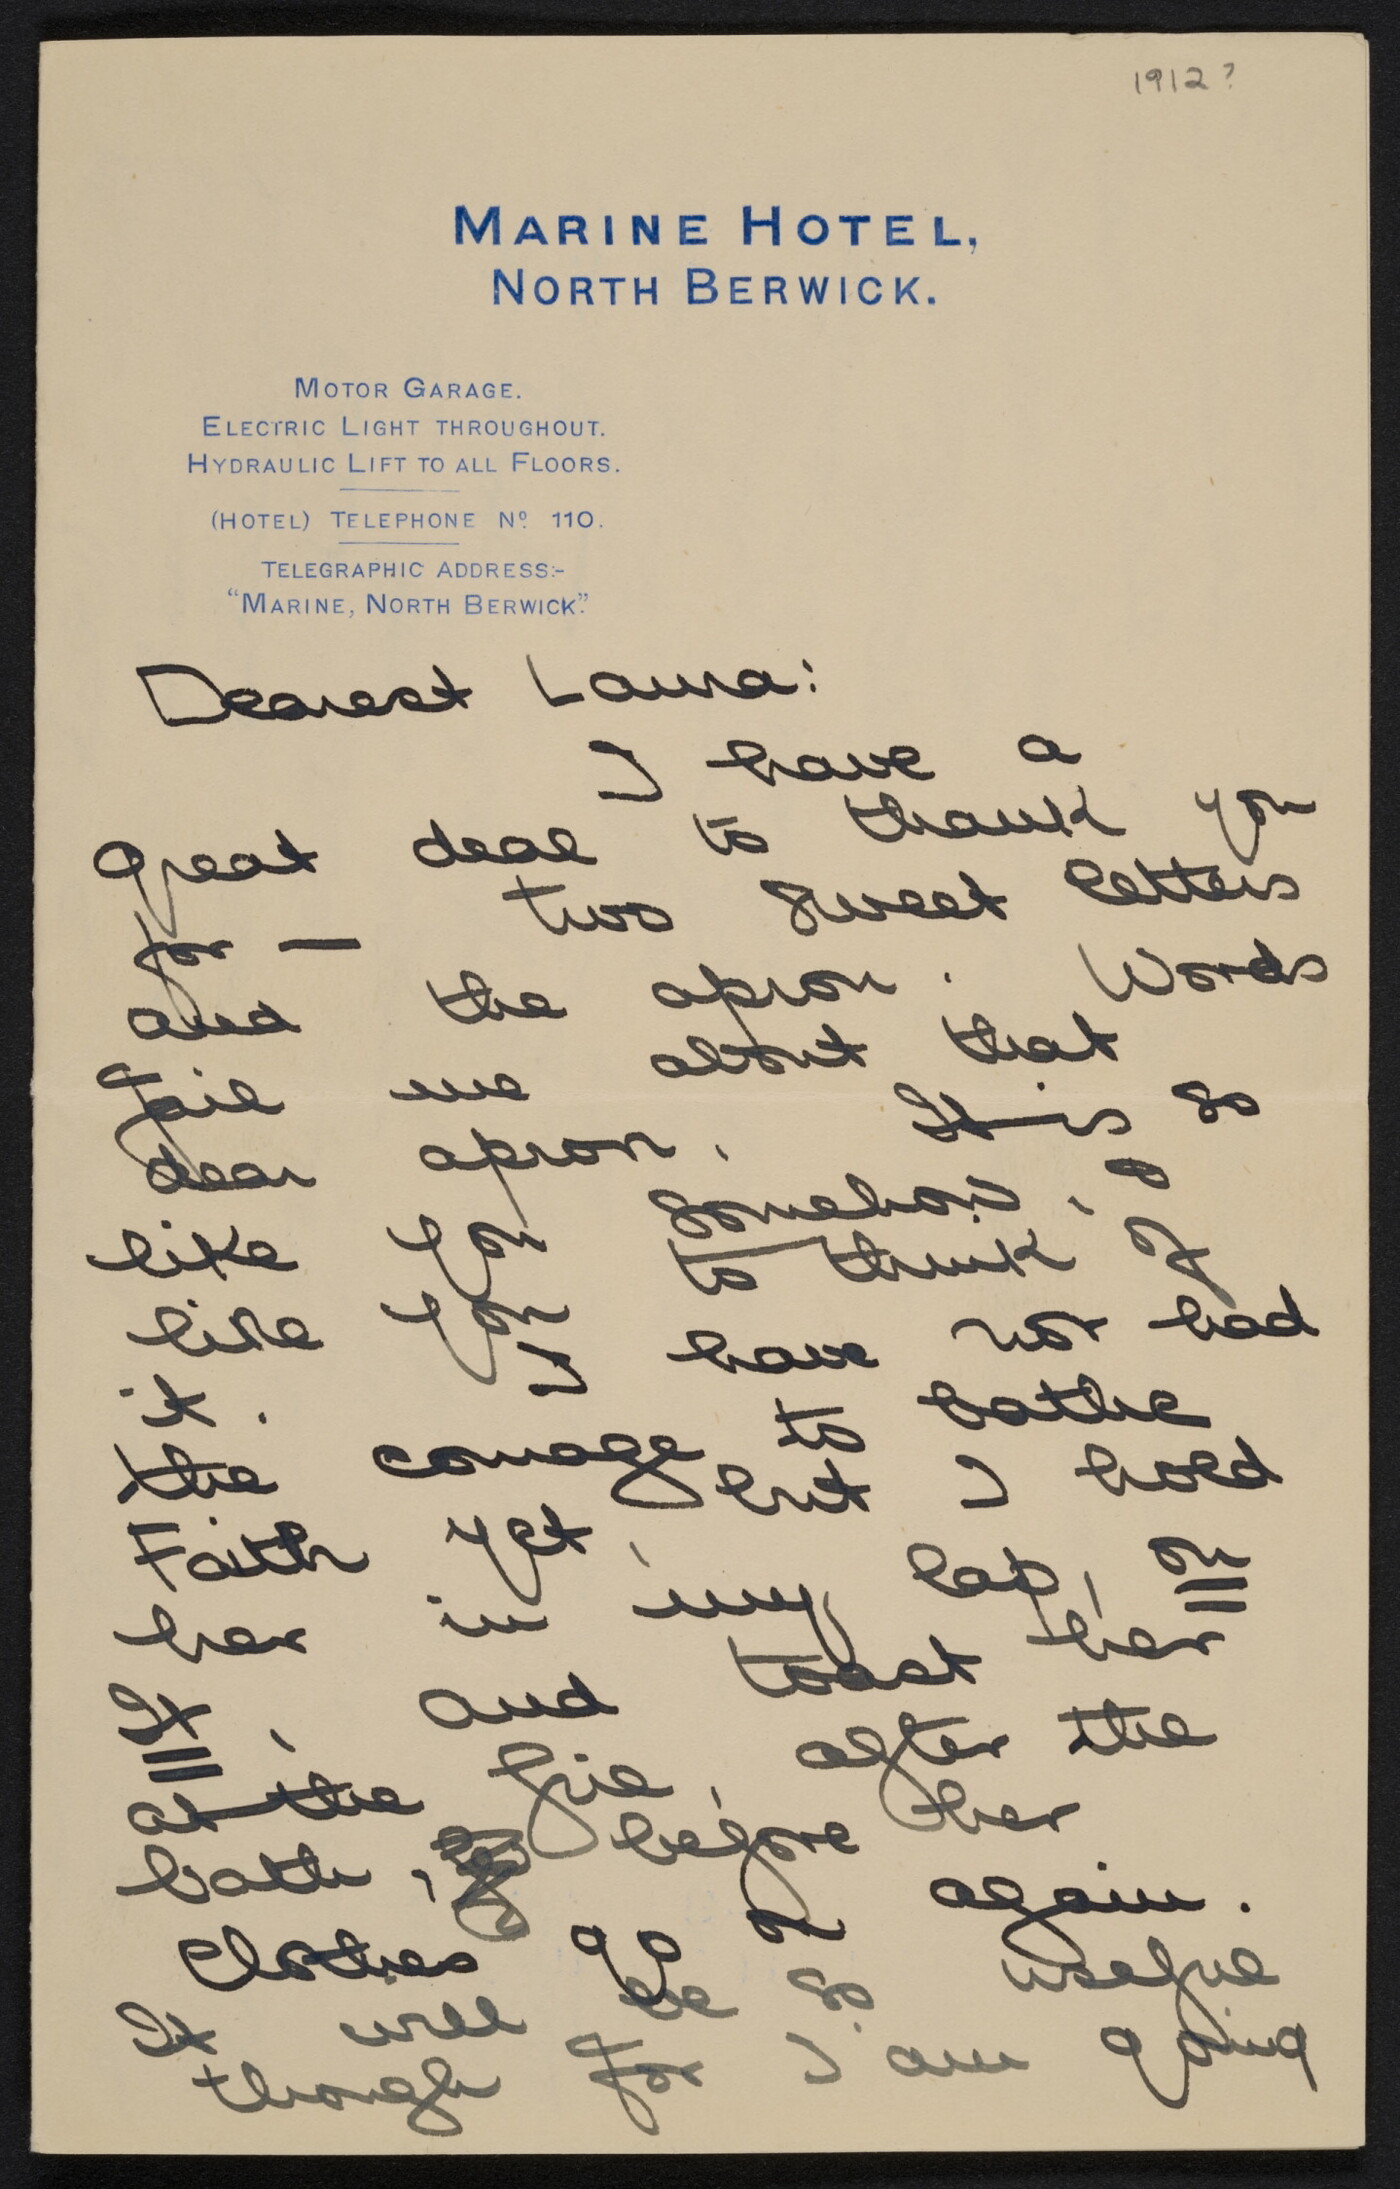 1912?
MARINE HOTEL,
NORTH BERWICK.
MOTOR GARAGE.
ELECTRIC LIGHT THROUGHOUT.
HYDRAULIC LIFT TO ALL FLOORS.
(HOTEL) TELEPHONE Nº 110.
TELEGRAPHIC ADDRESS:-
"MARINE, NORTH BERWICK."
Dearest Laura:
I have a
great deal to thank you
for — two sweet letters
and the apron. Words
fail me about that
dear apron. It is so
like you somehow, &
like you to think of
it. I have not had
the courage to bathe
Faith yet, but I hold
her in my lap, on
it, and toast her
at the fire, after the
bath, before her
clothes go on again.
It will be so useful
though for I am going